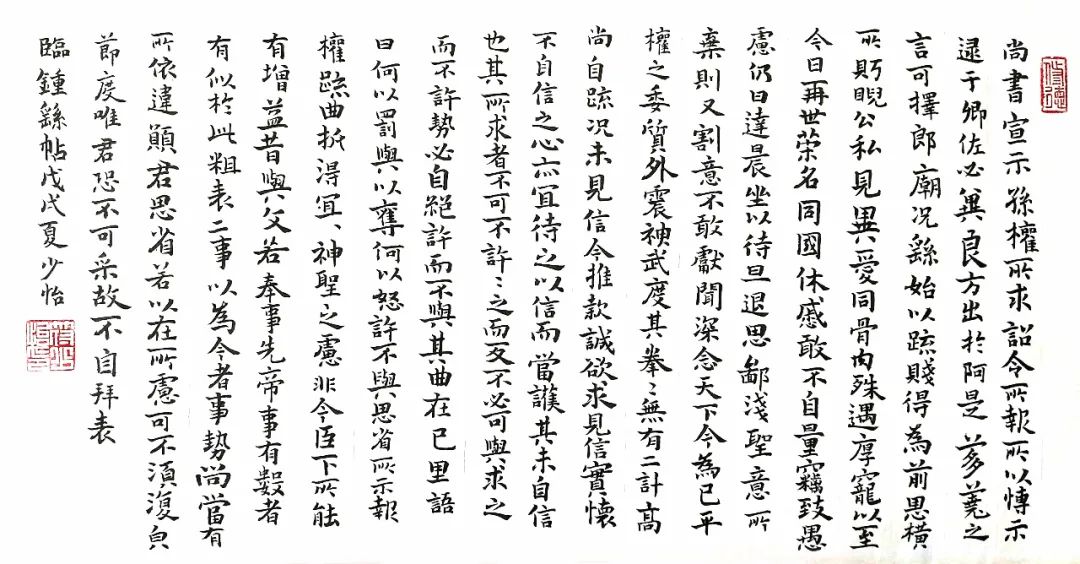 尚書宣示孫權所求詔令所報所以博示
逮于卿佐必冀良方出於阿是芻蕘之
言可擇郎廟況繇始以疏賤得為前恩橫
所眄睨公私見異愛同骨肉殊遇厚寵以至
今日再世榮名同國休慼敢不自量竊致愚
慮仍日達晨坐以待旦退思鄙淺聖意所
棄則又割意不敢獻聞深念天下今為已平
權之委質外震神武度其拳〻無有二計高
尚自疏況未見信今推款誠欲求見信實懷
不自信之心亦宜待之以信而當護其未自信
也其所求者不可不許〻之而反不必可與求之
而不許勢必自絕許而不與其曲在己里語
曰何以罰與以奪何以怒許不與思省所示報
權疏曲折得宜、神聖之慮非今臣下所能
有增益昔與文若奉事先帝事有數者
有似於此粗表二事以為今者事勢尚當有
所依違願君思省若以在所慮可不須復負
節度唯君恐不可采故不自拜表
臨鍾繇帖戊戌夏少怡